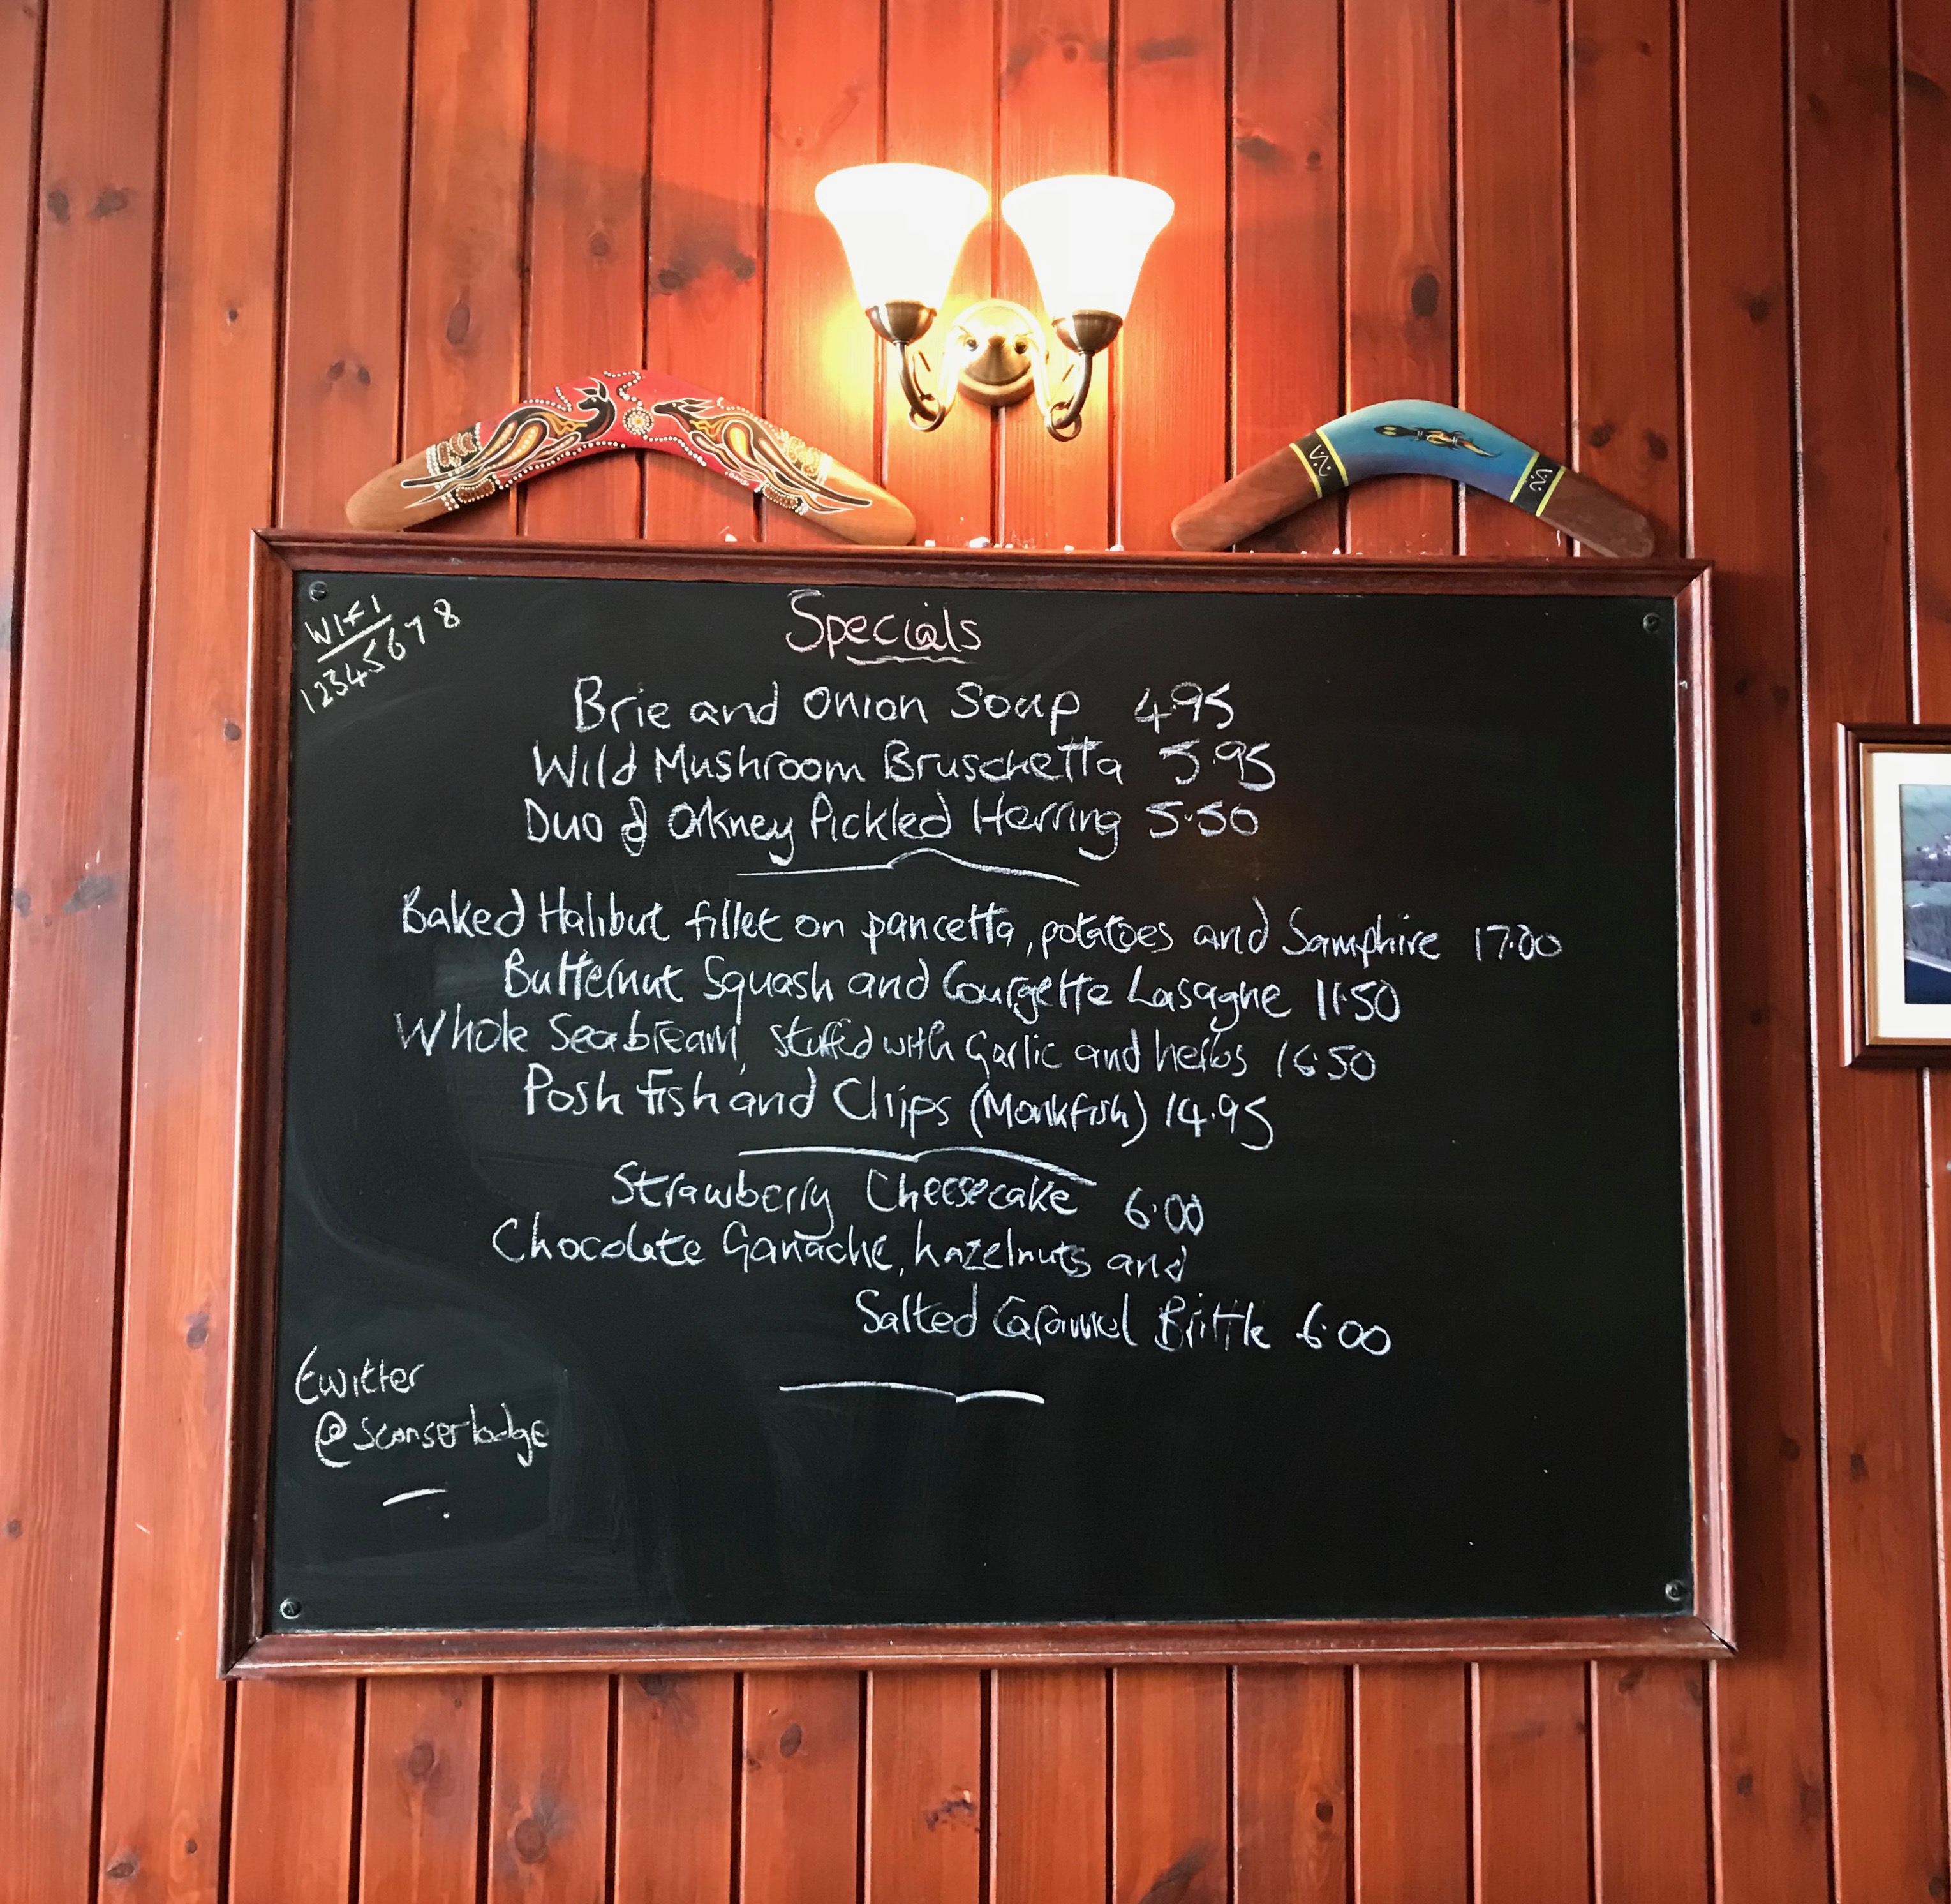 WIFI
12345678
Specials
Brie and Onion Soup 4.95
Wild Mushroom Bruschetta 5.95
Duo of Orkney Pickled Herring 5.50
Baked Halibut fillet on pancetta, potatoes and Samphire 17.00
Butternut Squash and Courgette Lasagne 11.50
Whole Seabream, stuffed with Garlic and herbs 16.50
Posh Fish and Chips (Monkfish) 14.95
Strawberry Cheesecake 6.00
Chocolate Ganache, hazelnuts and
Salted Caramel Brittle 6.00
twitter
@sconserlodge